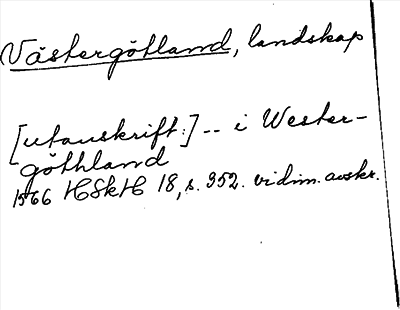 Västergötland, landskap
[utanskrift:] -- i Wester-
göthland
1566 HSkH 18, s. 352. vidim. avskr.